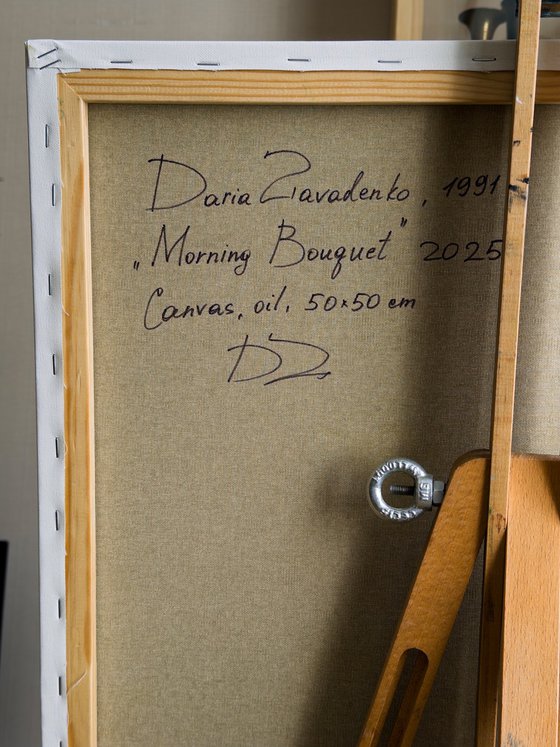 Daria Zavadenko, 1991
„Morning Bouquet" 2025
Canvas, oil, 50×50 cm
DZ
M8